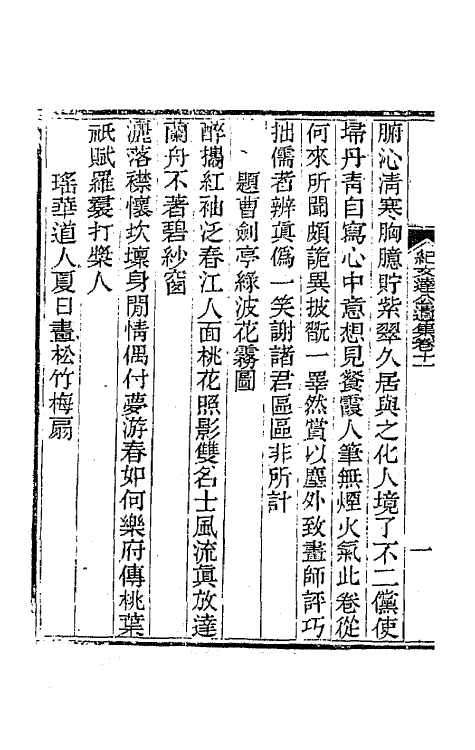 紀文達公遺集卷十一
一
腑沁清寒胸臆貯紫翠久居與之化人境了不二儻使
埽丹青自寫心中意想見餐霞人筆無煙火氣此卷從
何來所聞頗詭異披翫一睪然賞以塵外致畫師評巧
拙儒者辨眞僞一笑謝諸君區區非所計
題曹劍亭綠波花霧圖
醉攜紅袖泛春江人面桃花照影雙名士風流眞放達
蘭舟不著碧紗窗
灑落襟懷坎壈身閒情偶付夢游春如何樂府傳桃葉
祇賦羅裠打槳人
瑤華道人夏日畫松竹梅扇